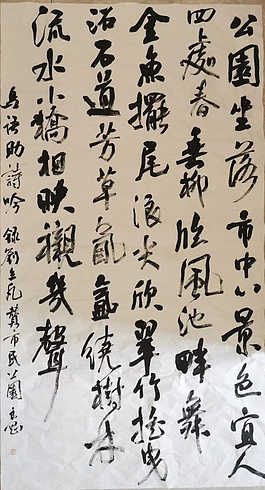 公園坐落市中心景色宜人
四處春垂柳臨風池畔舞
金魚擺尾浪尖欣翠竹搖曳
沿石道芳草氤氳繞樹林
流水小橋相映襯幾聲
鳥語助詩吟 錄劉凡贊市民公園